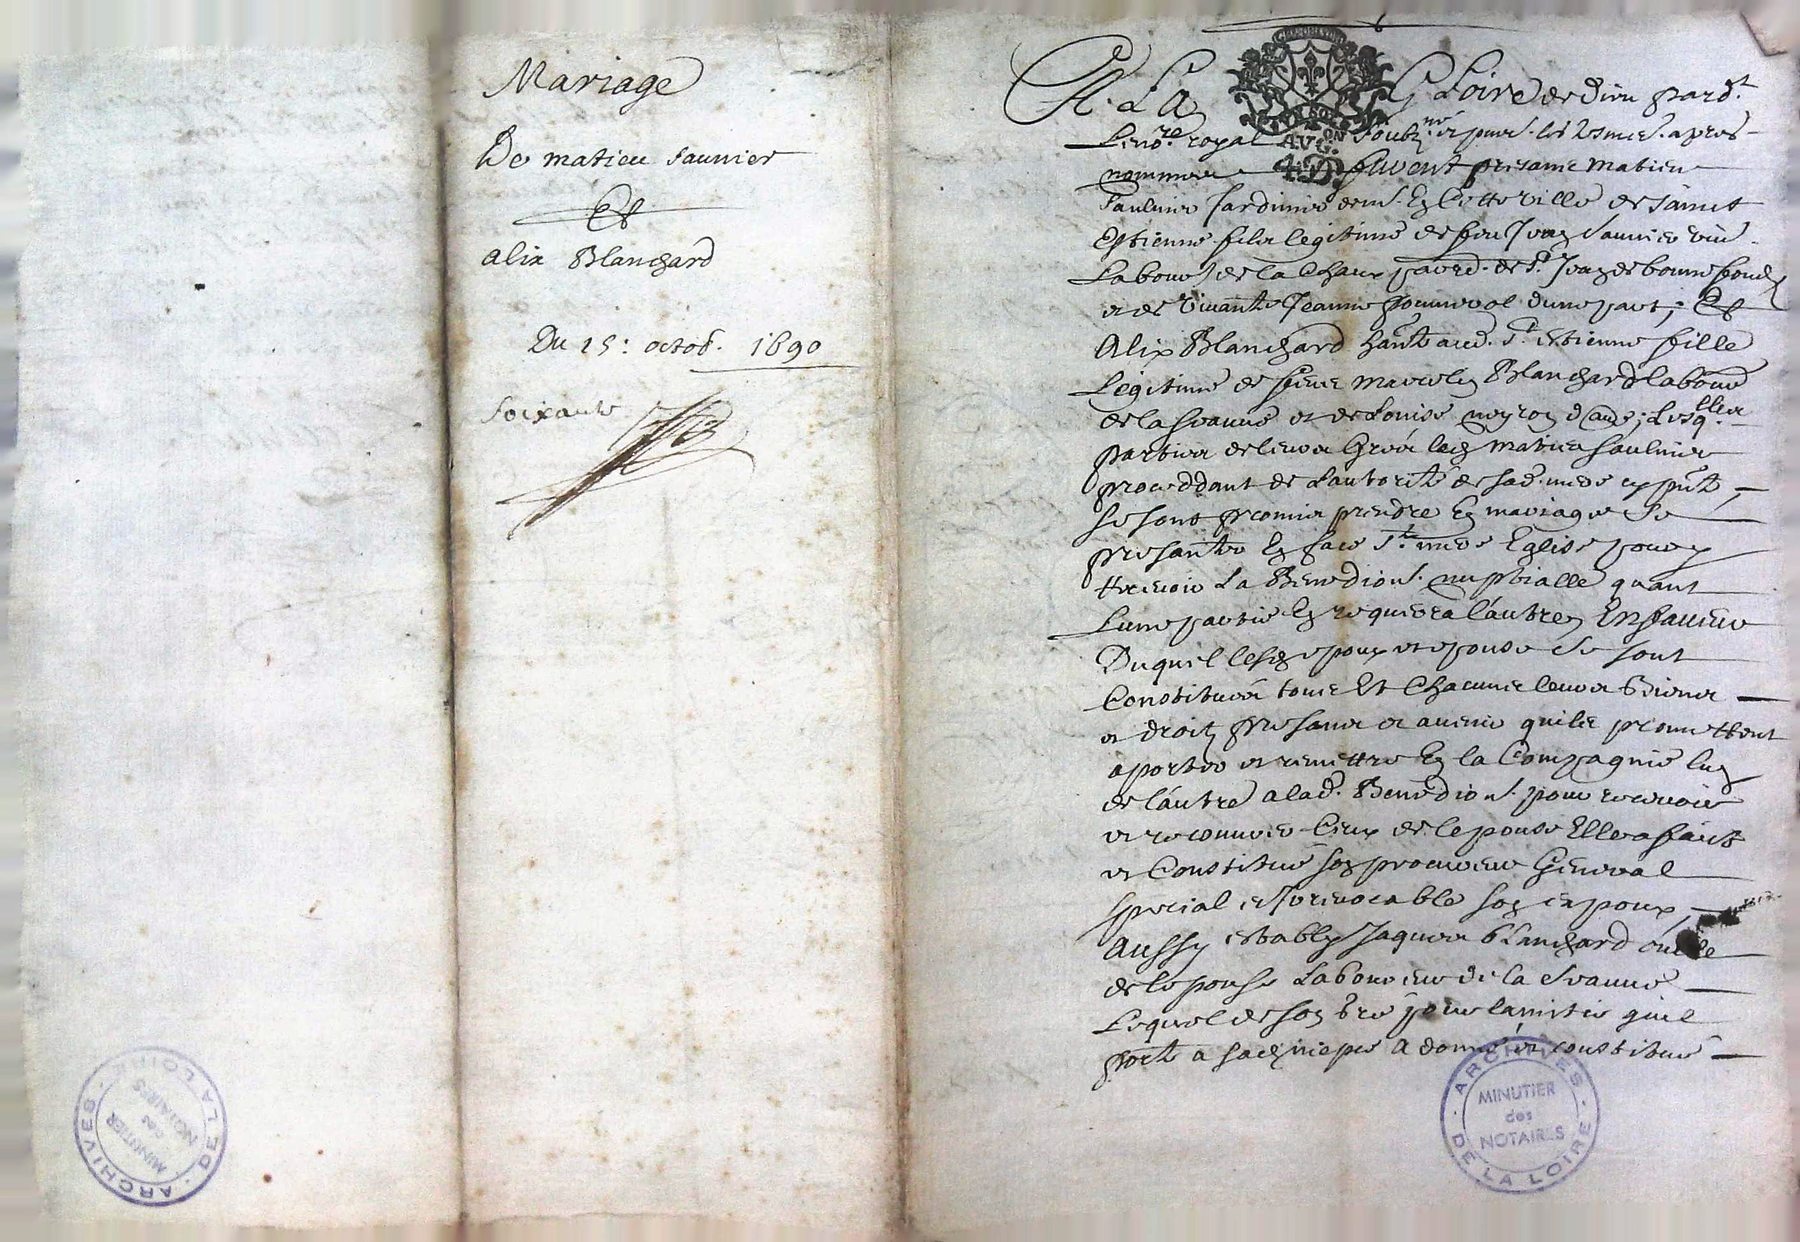 Mariage
De matieu saunier
Et
alix Blanchard
Du 15: octob. 1690
soixante
A La Gloire de dieu pard.t
Le no.re royal soubz.né et jour
AVG.ON
4.D
nommés furent presans matieu
saulnier Jardinier dem.t En Cette ville de saint
Estienne fils legitime de feu Jean saunier viv.
Labour.r de la Chaux parr.d de s.t Jean de bonnefondz
et de vivante Jeanne dune part; Et
Alix Blanchard hante aud. s.t estienne fille
Legitime de sieur marcely Blanchard laboure
et de Louise neyron d'autre; Lesq.lles
parties de leurs Grés led. matieu saulnier
proceddant de Lautorité de sad. mere cy pñte,
se sont promis prendre En mariage se
presanter En face s.te mere Eglise pour y
recevoir La Benedion. nuptialle quant
Lune partie En requerra lautre, En faveur
Duquel lesd. epoux et epouse se sont
Constitués tous Et Chacuns leurs Biens
et droitz presans et avenir quils promettent
aporter et remettre En la Compagnie lun
de lautre a lad. Benedion. pour recevoir
et reconnoir Ceux de lepouse Elle a fait
et Constitué son procureur General
special et Irrevocable son epoux,
Aussy estably Jaques blanchard oncle
de lepouse Laboureur de la
Lequel de son gré pour lamitié quil
porte a sad. niepce a donné et constitué
ARCHIVES DE LA LOIRE
MINUTIER
des
NOTAIRES
ARCHIVES DE LA LOIRE
MINUTIER
des
NOTAIRES